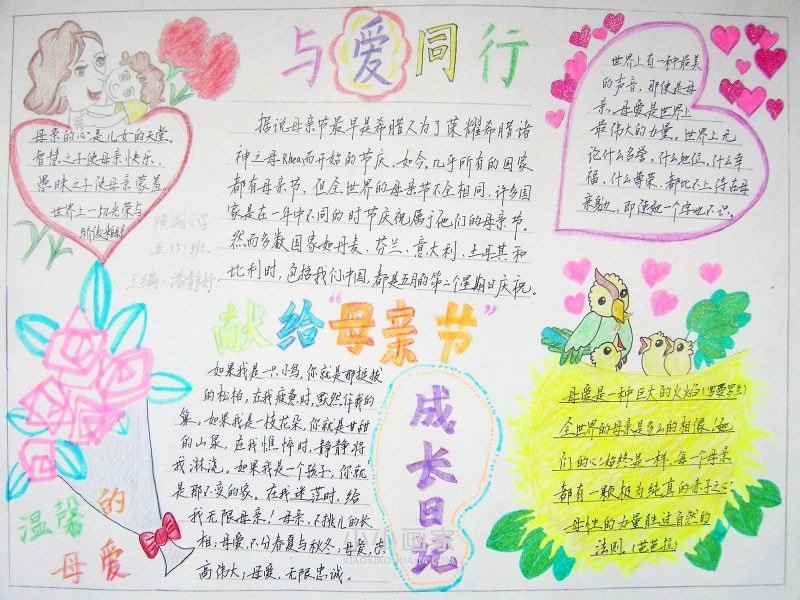 与爱同行
母亲的心是儿女的天堂。
智慧之子使母亲快乐，
愚昧之子使母亲蒙羞。
世界上一切光荣与
横湖小学
五(5)班
主编:潘静妤
据说母亲节最早是希腊人为了荣耀希腊诸
神之母Rhea而开始的节庆。如今，几乎所有的国家
都有母亲节，但全世界的母亲节不全相同，许多国
家是在一年中不同的时节庆祝属于他们的母亲节。
然而多数国家如丹麦、芬兰、意大利、土耳其和
比利时，包括我们中国，都是五月的第二个星期日庆祝。
世界上有一种最美
的声音，那便是母
亲。母爱是世界上
最伟大的力量。世界上无
论什么名誉，什么地位，什么幸
福，什么尊荣，都比不上待在母
亲身边，即使她一个字也不识。
献给“母亲节”
如果我是一只小鸟，你就是那挺拔
的松柏，在我疲惫时，默然作我的
巢。如果我是一枝花朵，你就是甘甜
的山泉，在我憔悴时，静静将
我淋浇。如果我是一个孩子，你就
是那不变的家。在我迷茫时，给
我无限母亲！母亲，不挑儿的长
相，母爱，不分春夏与秋冬，母爱，崇
高伟大；母爱，无限忠诚。
成长日记
母爱是一种巨大的火焰(罗曼罗兰)
全世界的母亲是多么的相像！她
们的心始终是一样，每一个母亲
都有一颗极为纯真的赤子之心
母性的力量胜过自然的
法则。(芭芭拉)
温馨的
母爱
小小画家